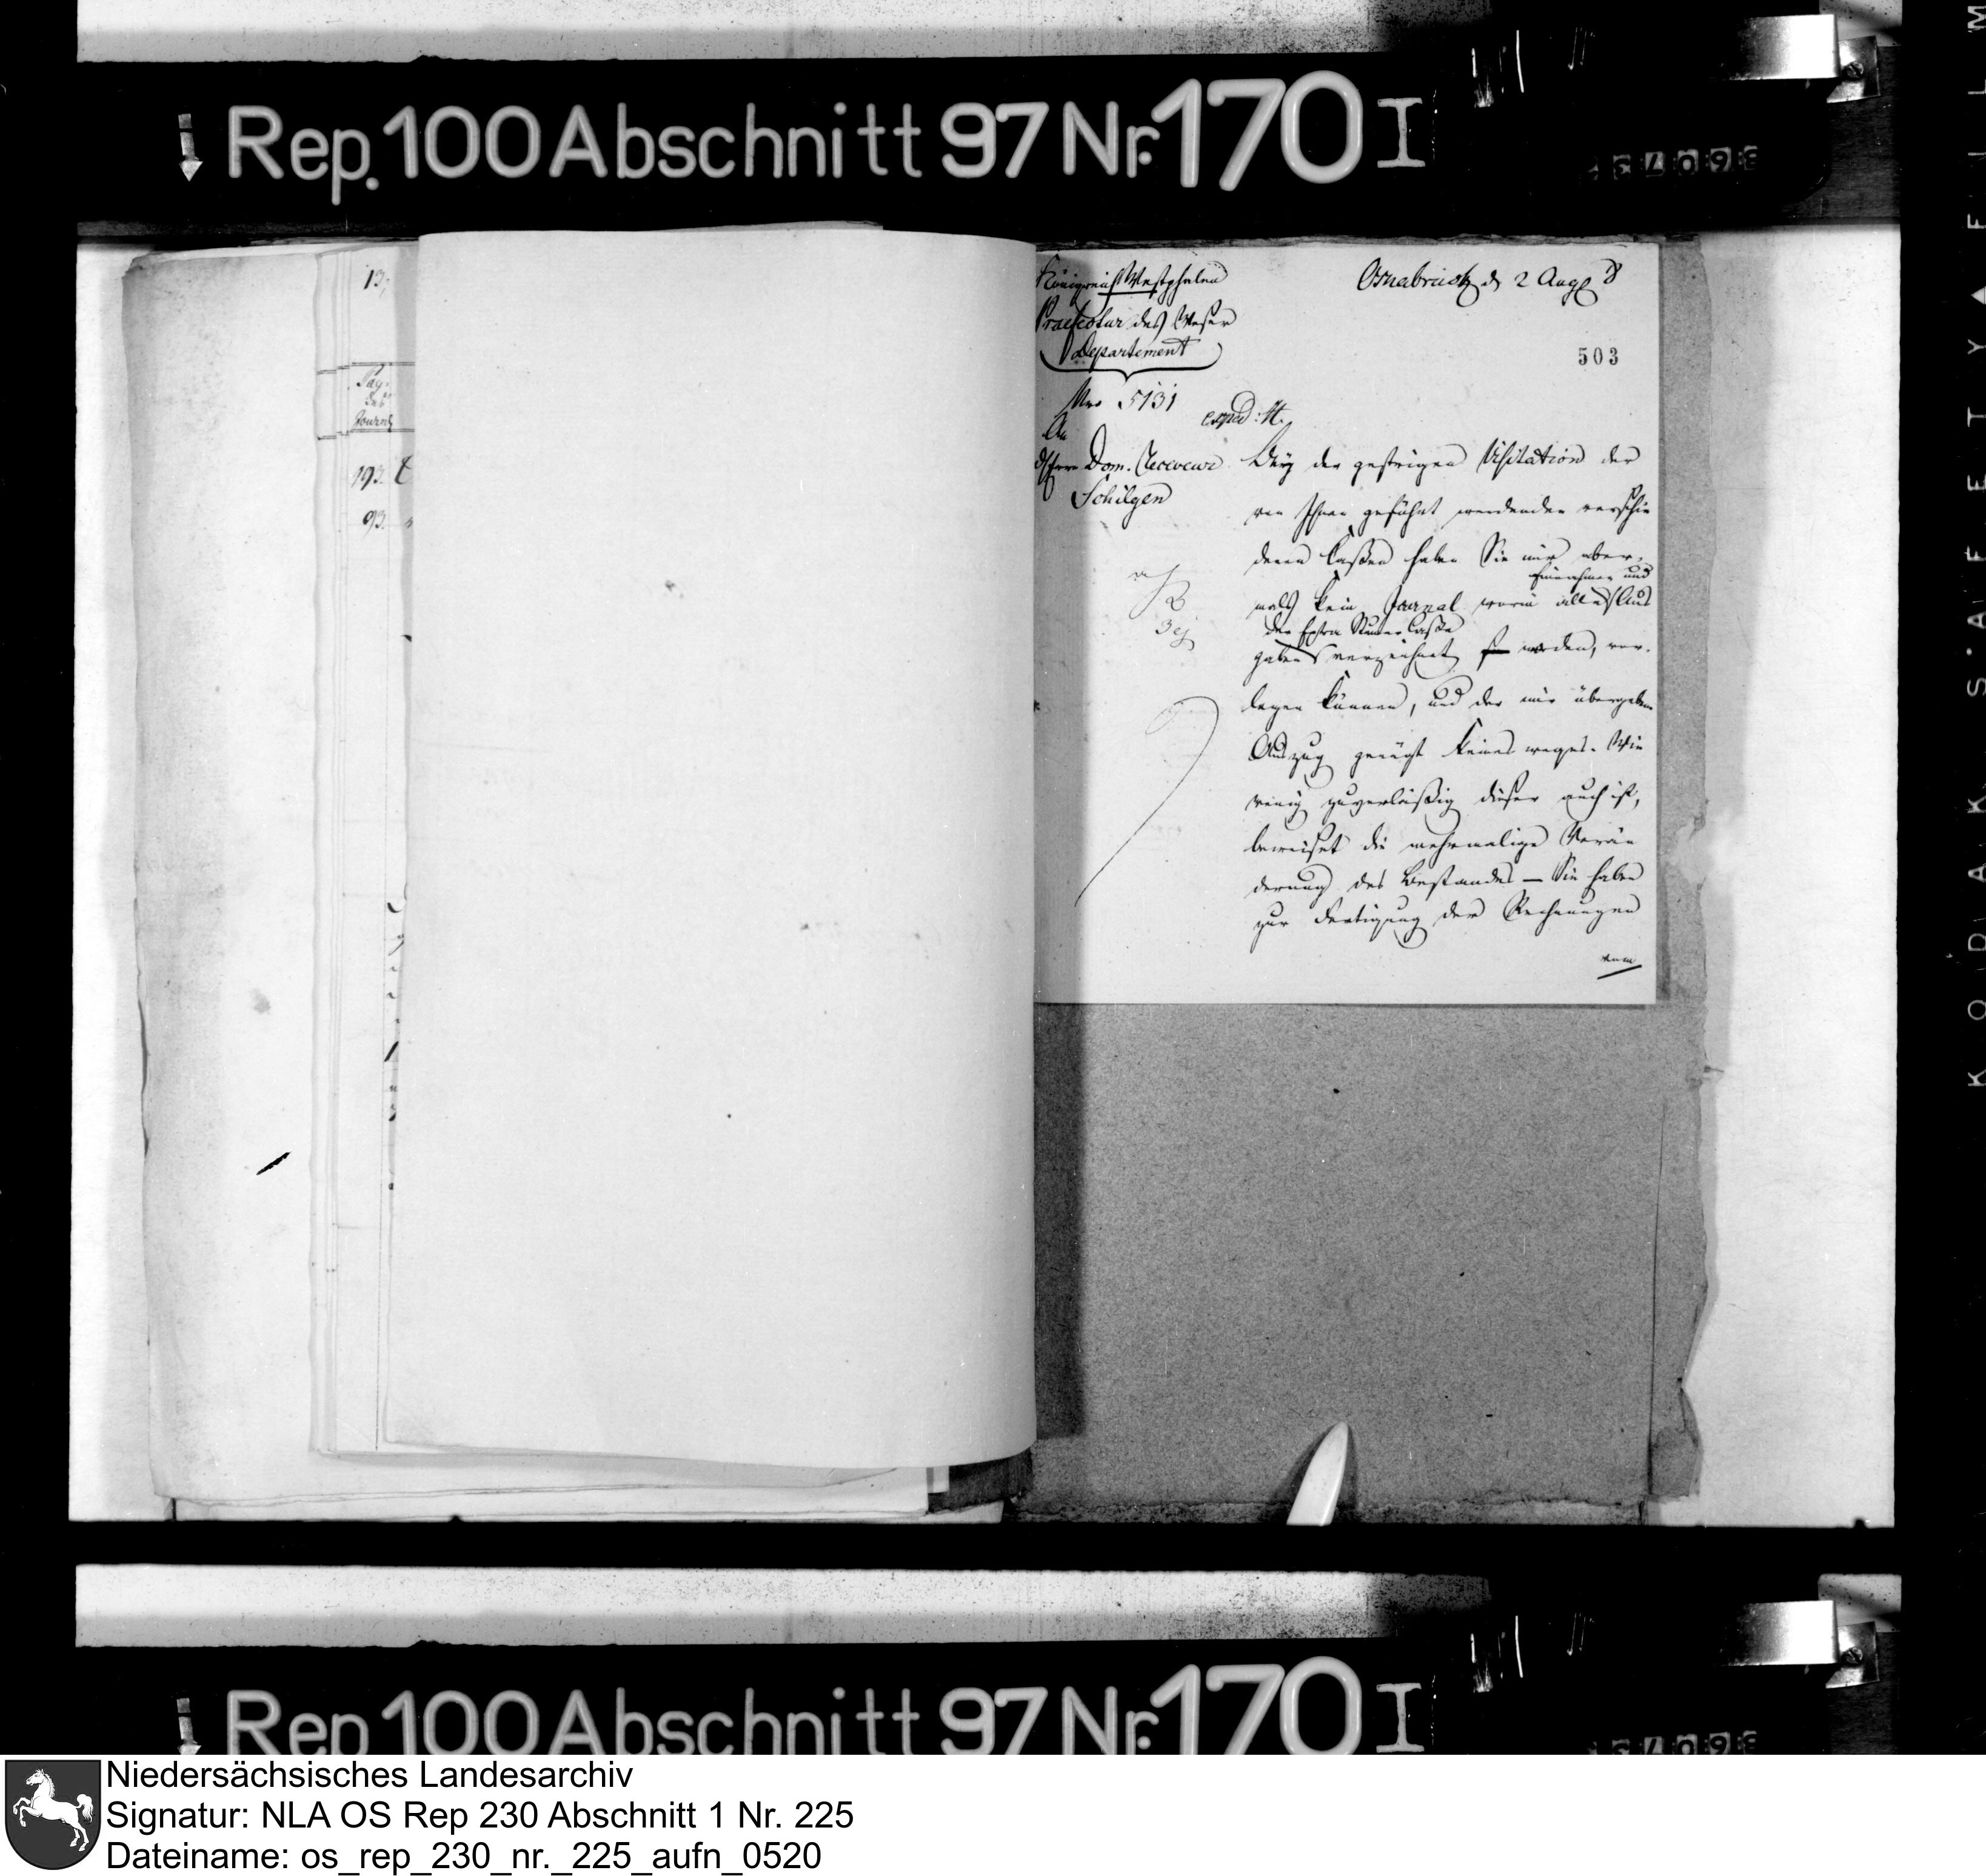 Rep. 100 Abschnitt 97 Nr. 170 I
13
Pag.
des
Journ
193.
93.
Königreich Westphalen
Praefectur des Weser
Departement
Osnabrück d 2 Aug
503
Nro 5131
exped: H.
An
d Herrn Dom. Receveur
Schilgen
Bey der gestrigen Visitation der
von Ihnen geführt werdenden verschie
denen Caßen haben Sie mir aber-
Einnahmen und
mals kein Journal worin alle Aus
der Extra Steuer Caße
gaben verzeichnet werden, vor-
legen können, und der mir übergebene
Auszug genügt keines weges. Wie
wenig zuverläßig dieser auch ist,
beweiset die mehrmalige Verän
derung des Bestandes — Sie haben
zur Fertigung der Rechnungen
KODAK SAFETY FILM
Rep 100 Abschnitt 97 Nr. 170 I
Niedersächsisches Landesarchiv
Signatur: NLA OS Rep 230 Abschnitt 1 Nr. 225
Dateiname: os_rep_230_nr._225_aufn_0520